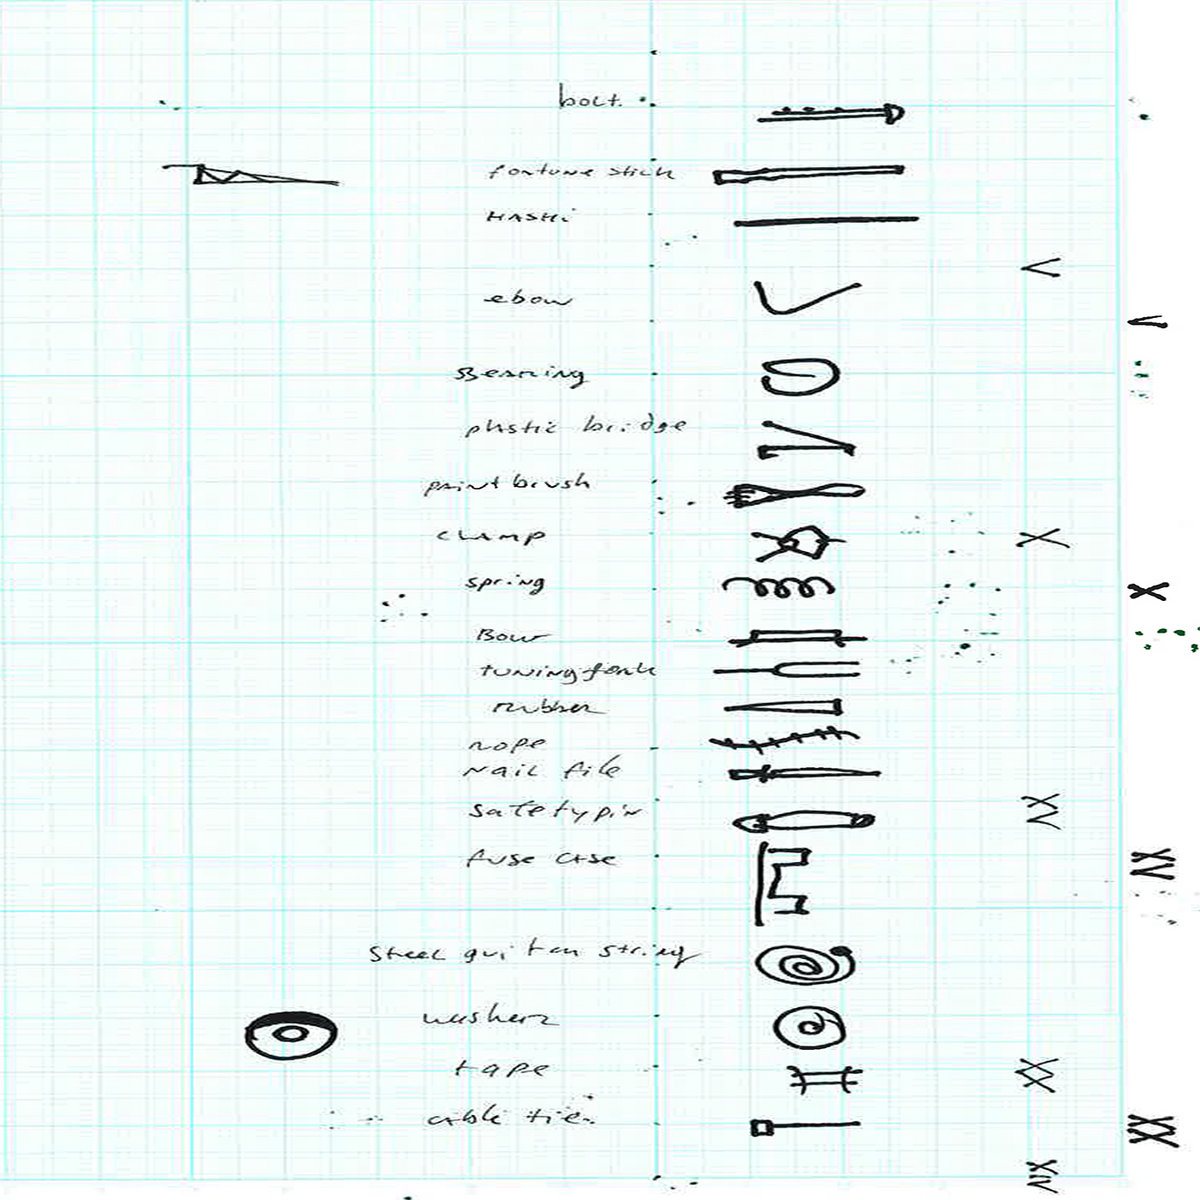 bolt.
fortune stick
HASHi
ebow
Bearing
plastic bridge
paint brush
CLAMP
spring
Bow
tuning fork
rubber
rope
Nail file
Safety pin
fuse case
Steel guitar string
washer
tape
cable tie.